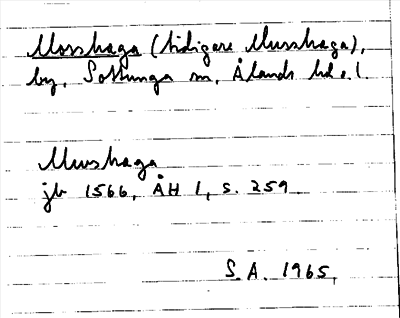 Mosshaga (tidigare Musshaga),
by, Sottunga sn, Ålands hd o. l.
Musshaga
jb 1566, ÅH 1, s. 259
S.A. 1965